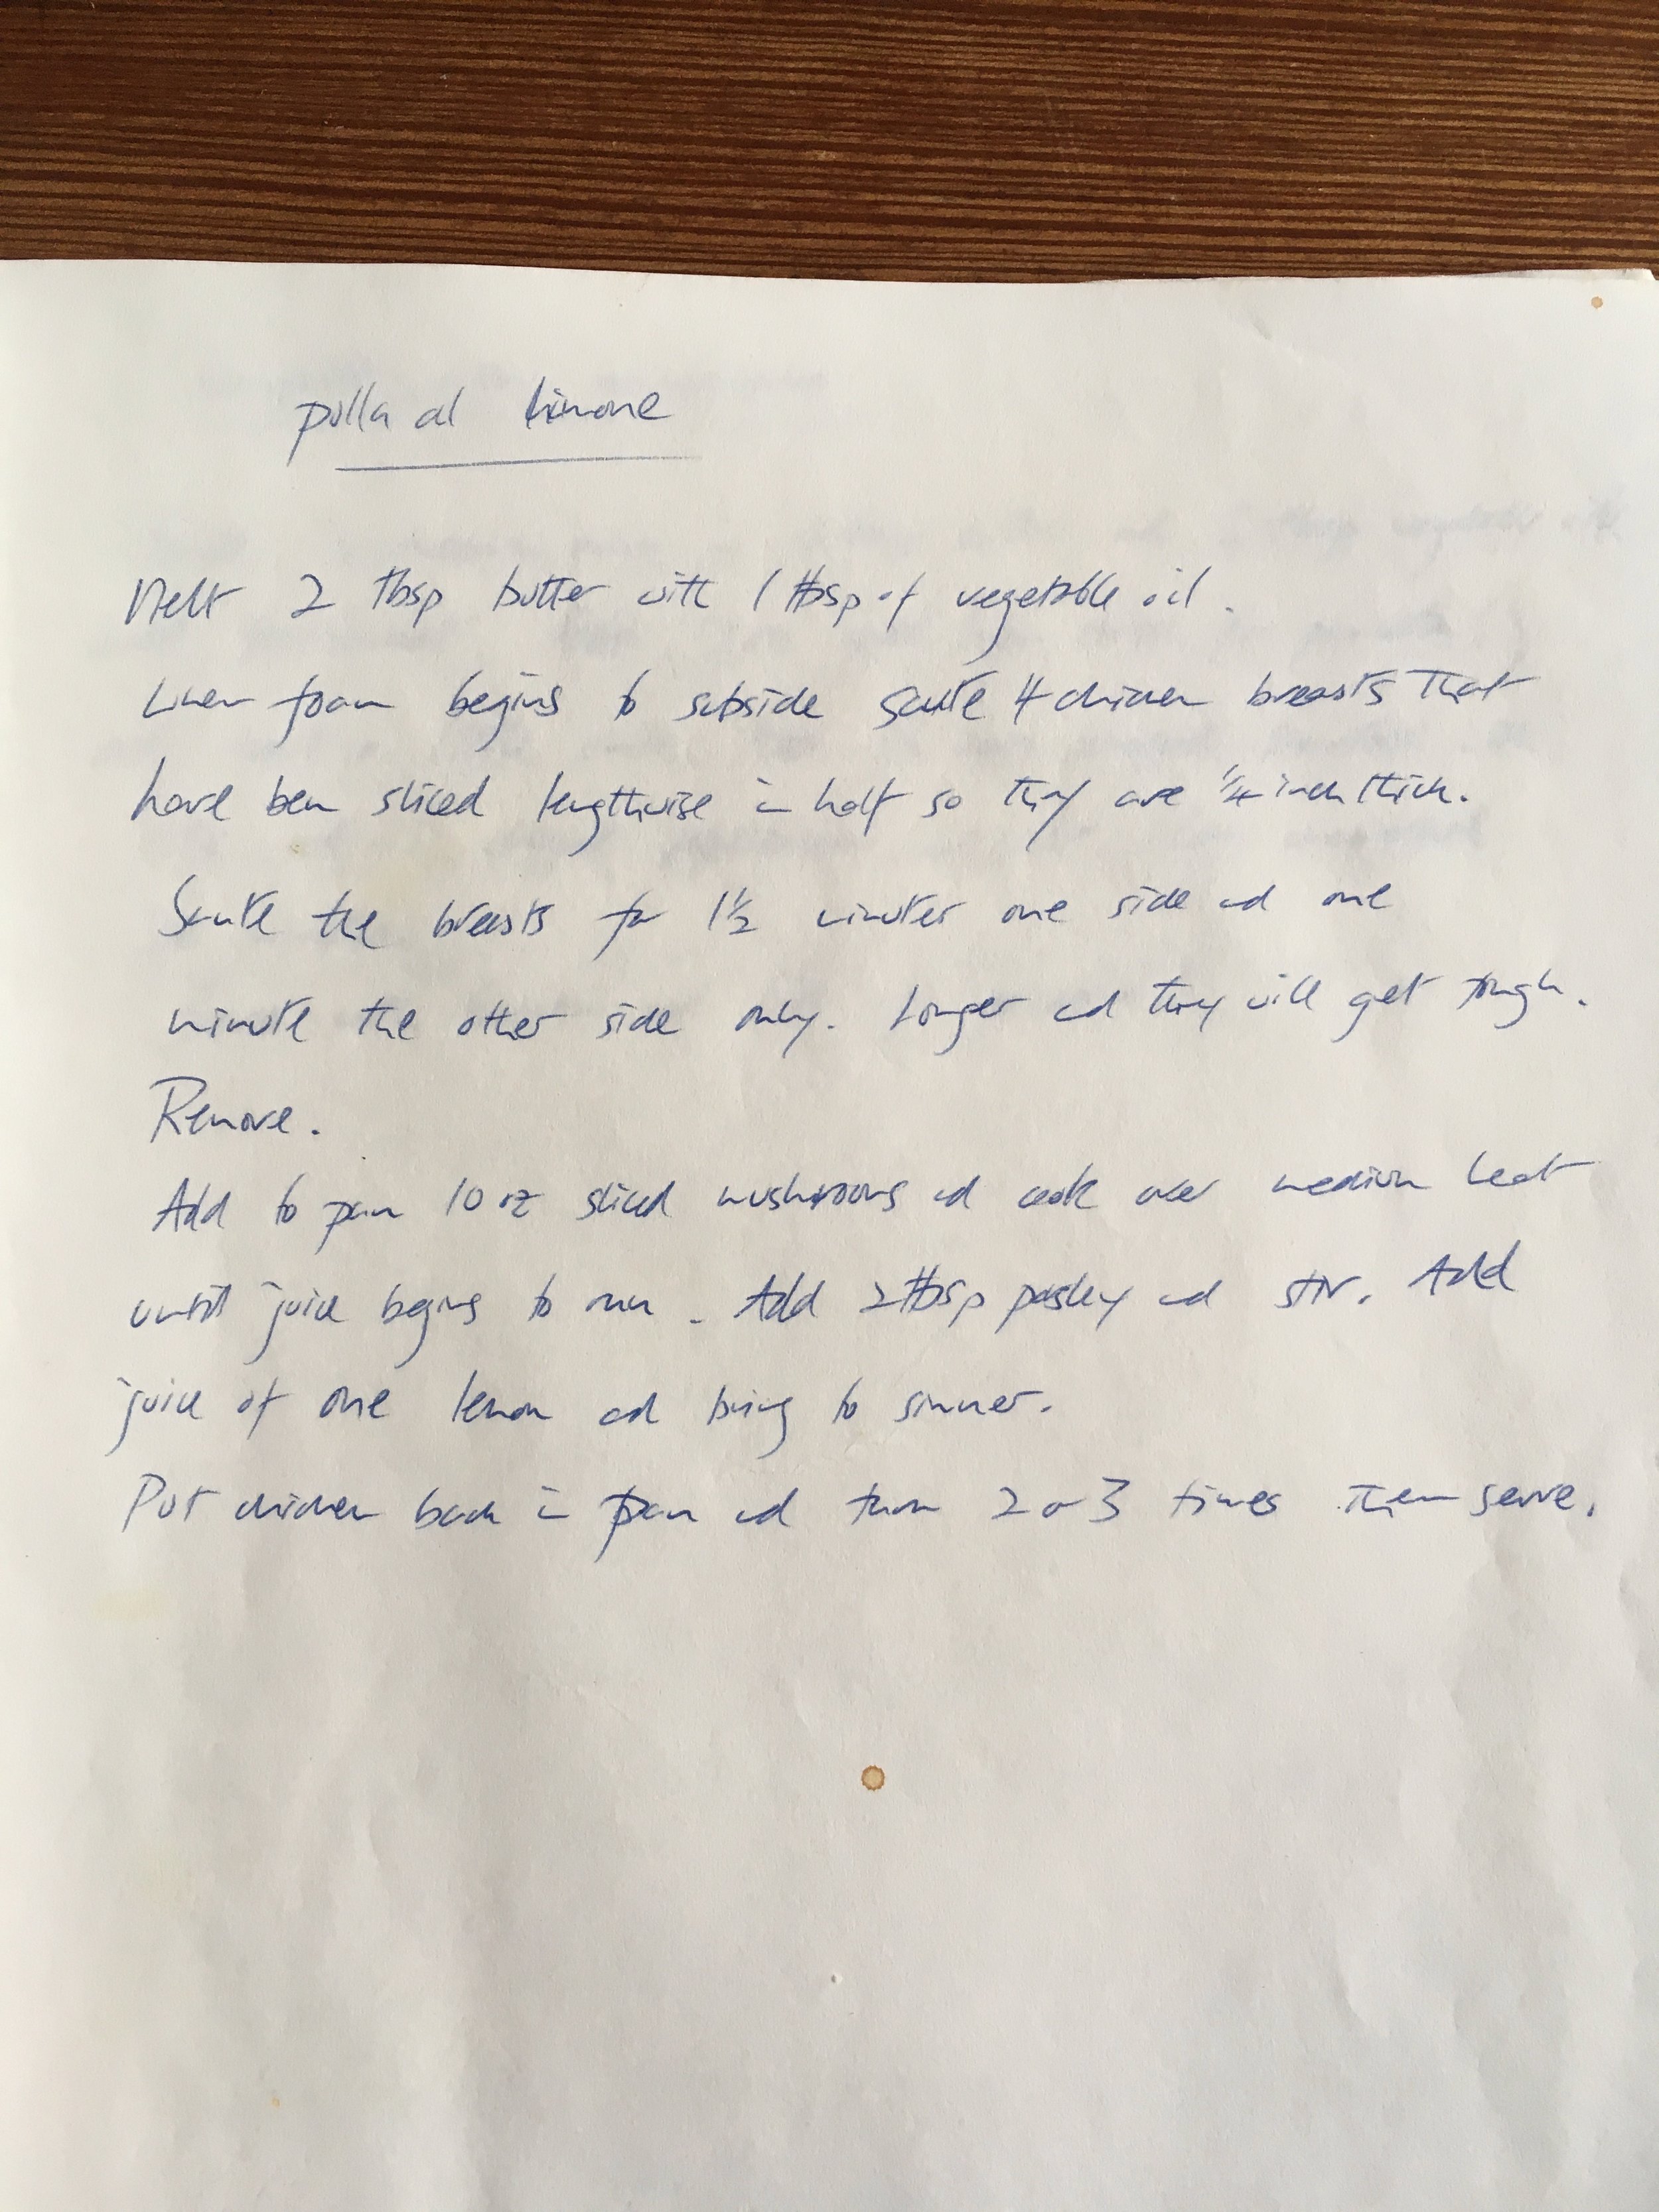 polla al limone
Melt 2 tbsp butter with 1 tbsp of vegetable oil.
When foam begins to subside saute 4 chicken breasts that
have been sliced lengthwise in half so they are 1/4 inch thick.
Saute the breasts for 1 1/2 minutes one side and one
minute the other side only. Longer and they will get tough.
Remove.
Add to pan 10 oz sliced mushrooms and cook over medium heat
until juice begins to run. Add 2 tbsp parsley and stir. Add
juice of one lemon and bring to simmer.
Put chicken back in pan and turn 2 or 3 times then serve.